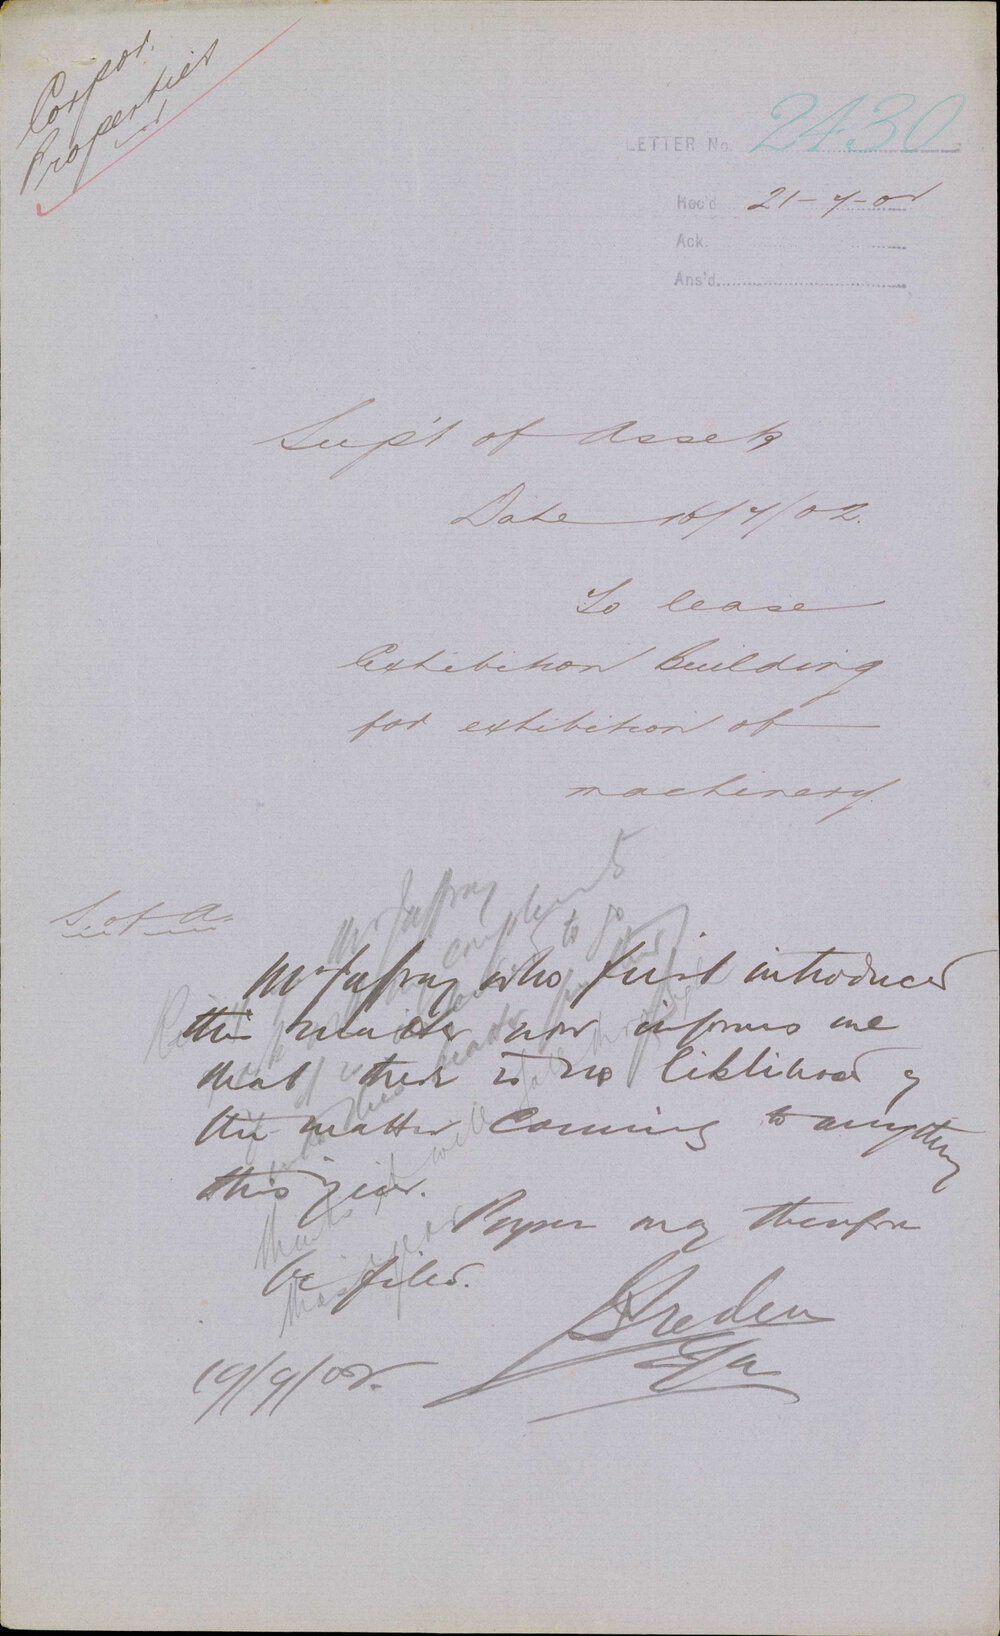 Corpor.
Properties
LETTER No. 2430
Rec'd 21-7-02
Ack.
Ans'd
Sup't of Assets
Date 16/7/02.
To lease
Exhibition Building
for exhibition of
machinery.
S. of A.
Mr Jaffray
compliments
to go
Mr Jaffray who first introduced
this matter now informs me
that there is no liklihood of
the matter coming to anything
this year.
Papers may therefore
be filed.
19/9/02.